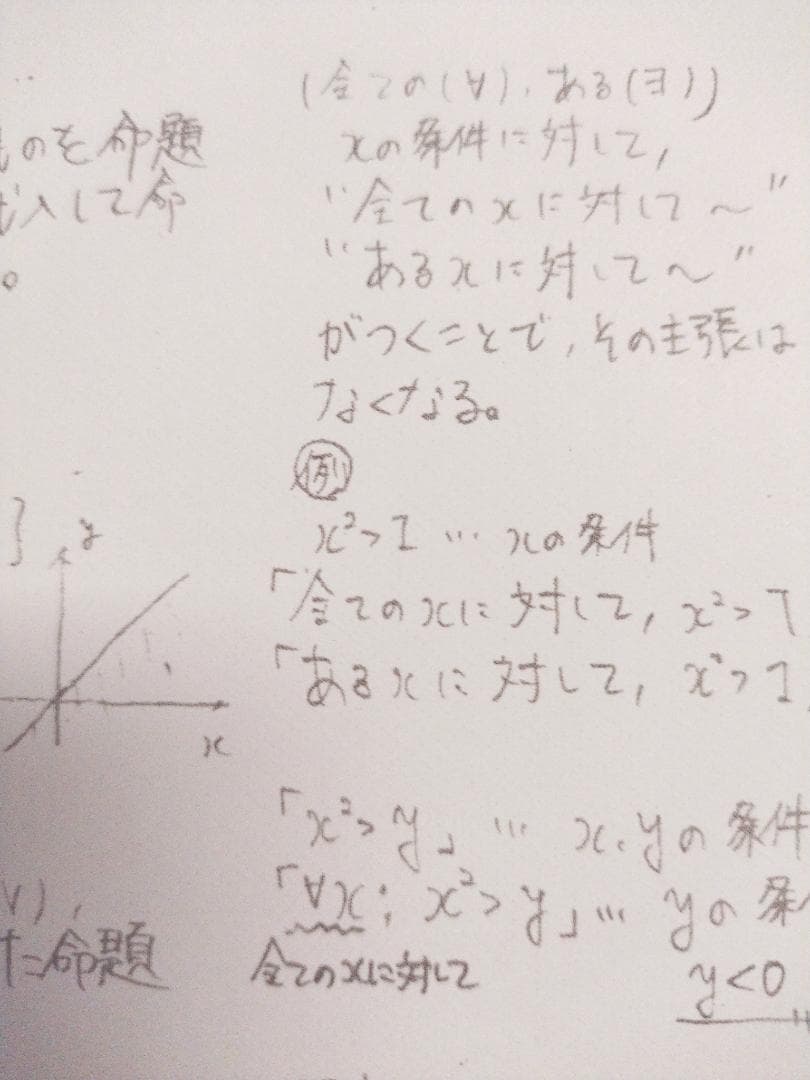 (全ての(∀), ある(∃))
xの条件に対して,
"全てのxに対して〜"
"あるxに対して〜"
がつくことで,その主張は
なくなる。
のを命題
入して命
。
例
x²>1 … xの条件
「全てのxに対して, x²>1
「あるxに対して, x²>1
y
x
「x²>y」 … x,yの条件
「∀x; x²>y」… yの条
全てのxに対して
y<0
∀),
た命題